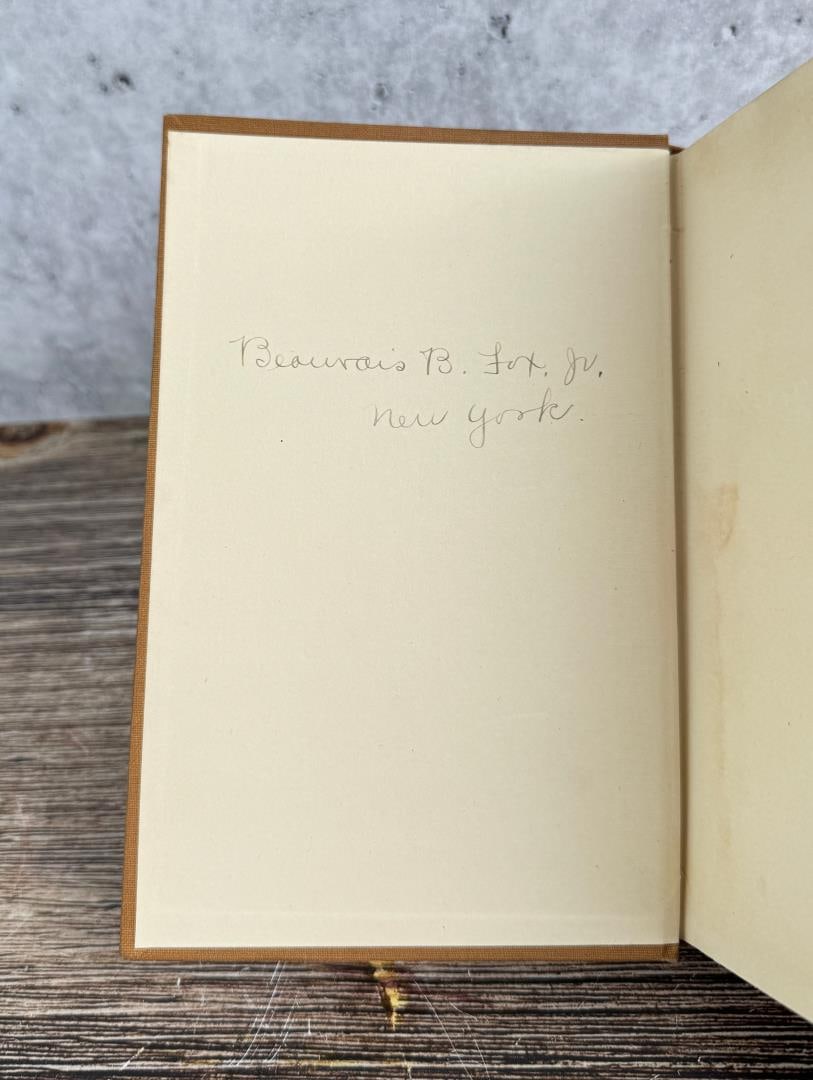 Beauvais B. Fox, Jr.
New York.